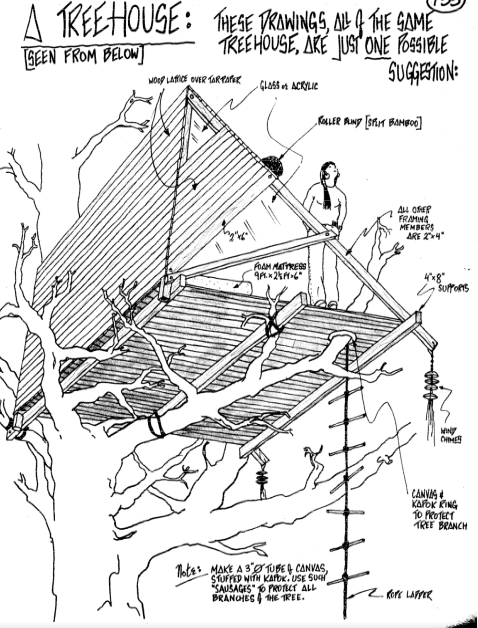 A TREEHOUSE:
[SEEN FROM BELOW]
THESE DRAWINGS, ALL of THE SAME
TREEHOUSE, ARE JUST ONE POSSIBLE
SUGGESTION:
WOOD LATTICE OVER TAR-PAPER
GLASS or ACRYLIC
ROLLER BLIND [SPLIT BAMBOO]
ALL OTHER
FRAMING
MEMBERS
ARE 2"x4"
2"x6"
FOAM MATTRESS
9 FT. x 2½ FT x 6"
4"x8"
SUPPORTS
WIND
CHIMES
CANVAS &
KAPOK RING
TO PROTECT
TREE BRANCH
Note: MAKE A 3"Ø TUBE of CANVAS,
STUFFED WITH KAPOK. USE SUCH
"SAUSAGES" TO PROTECT ALL
BRANCHES of THE TREE.
ROPE LADDER